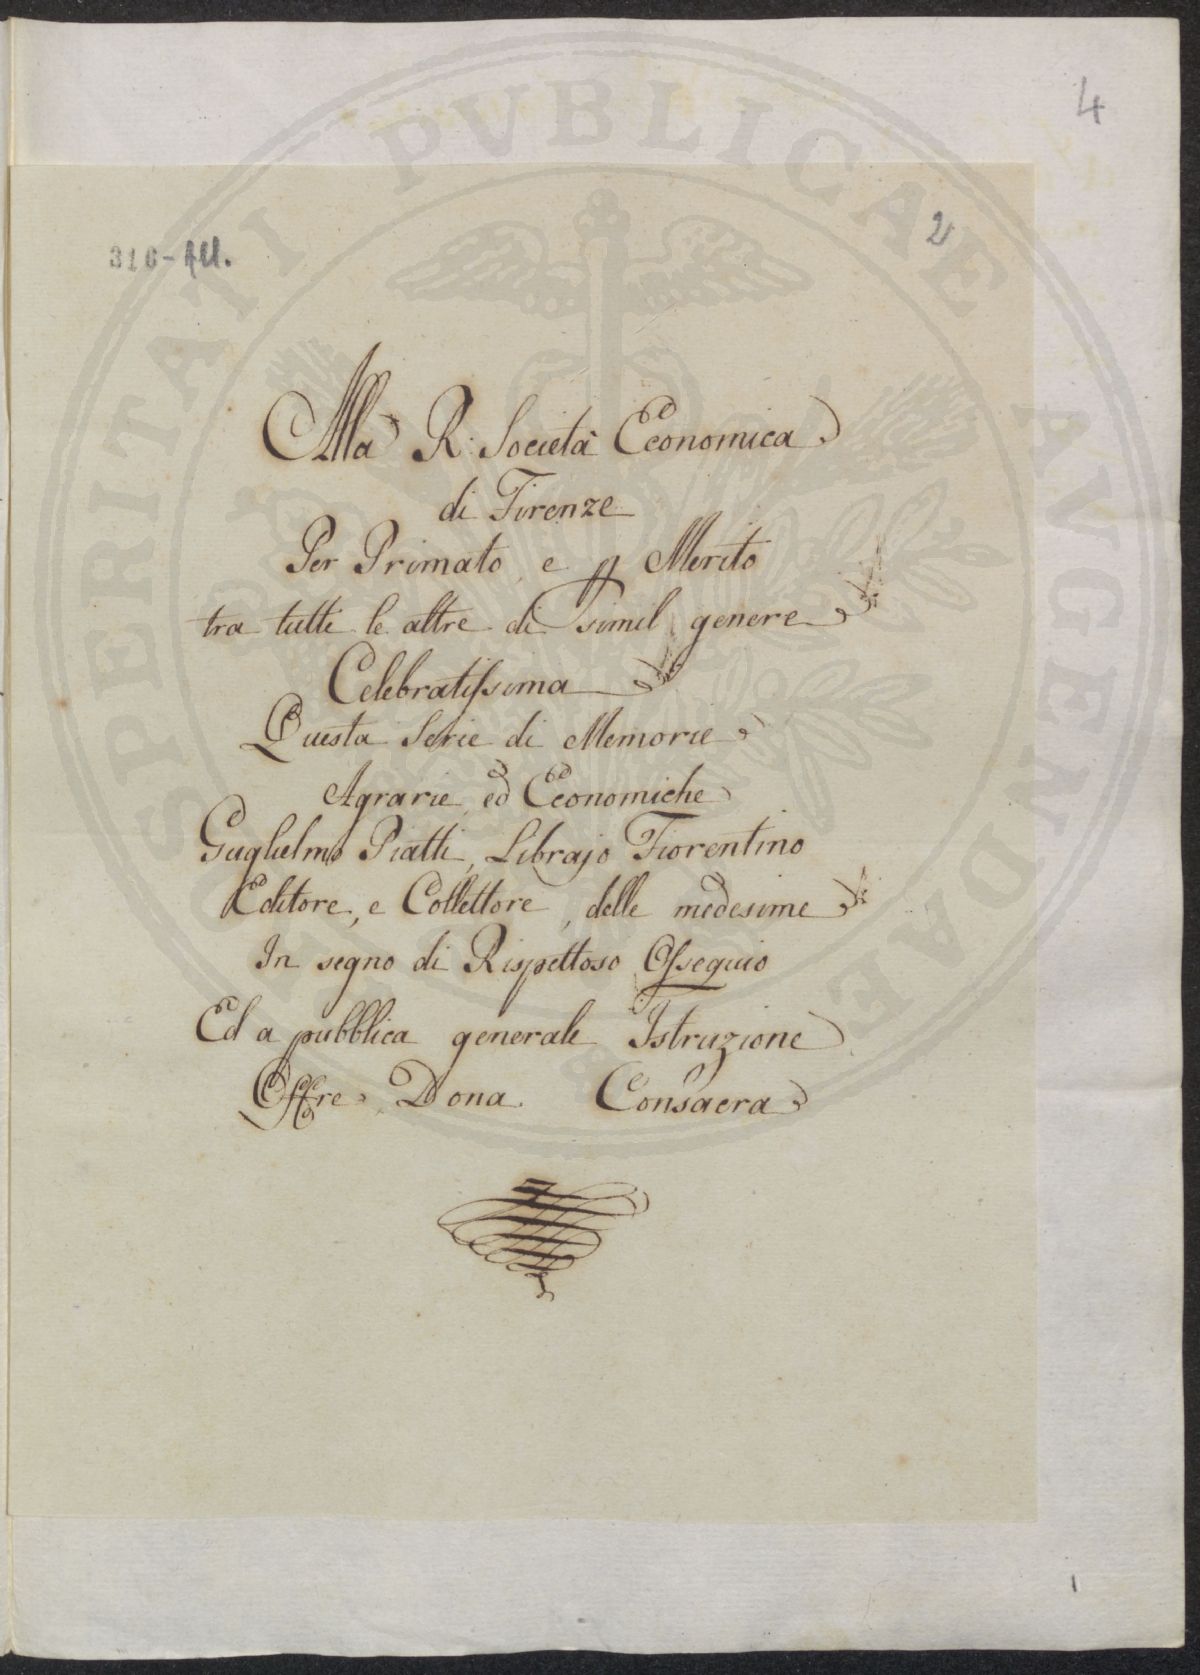 4
2
316-All.
Alla R: Società Economica
di Firenze
Per Primato, e p Merito
tra tutti le altre di simil genere
Celebratissima
Questa Serie di Memorie
Agrarie, ed Economiche
Guglielmo Piatti, Librajo Fiorentino
Editore, e Collettore, delle medesime
In segno di Rispettoso Ossequio
Ed a pubblica generale Istruzione
Offre, Dona Consacra
1
PROSPERITATI PVBLICAE AVGENDAE